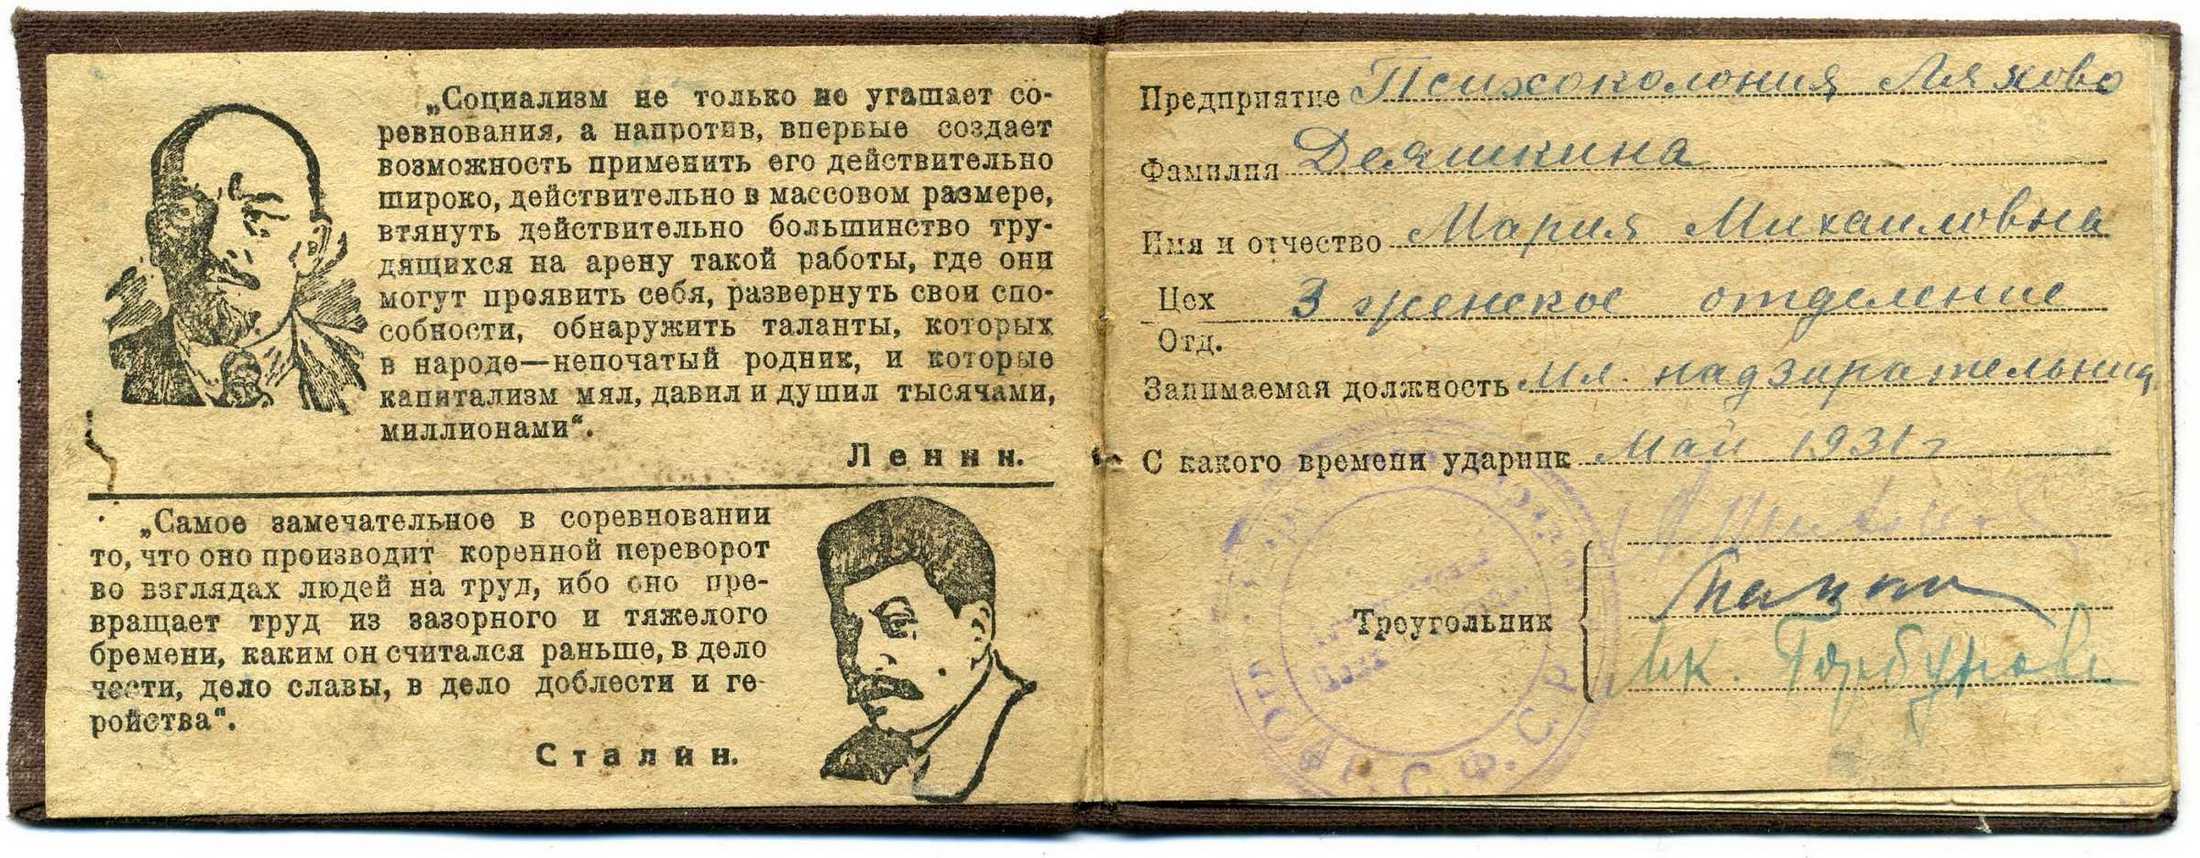 „Социализм не только не угашает со-
ревнования, а напротив, впервые создает
возможность применить его действительно
широко, действительно в массовом размере,
втянуть действительно большинство тру-
дящихся на арену такой работы, где они
могут проявить себя, развернуть свои спо-
собности, обнаружить таланты, которых
в народе—непочатый родник, и которые
капитализм мял, давил и душил тысячами,
миллионами“.
Ленин.
„Самое замечательное в соревновании
то, что оно производит коренной переворот
во взглядах людей на труд, ибо оно пре-
вращает труд из зазорного и тяжелого
бремени, каким он считался раньше, в дело
чести, дело славы, в дело доблести и ге-
ройства“.
Сталин.
Предприятие Психоколония Ляхово
Фамилия Деяшкина
Имя и отчество Мария Михаиловна
Цех 3 женское отделение
Отд.
Занимаемая должность Мл. надзирательница
С какого времени ударник Май 1931 г
Треугольник
Р.С.Ф.С.Р.